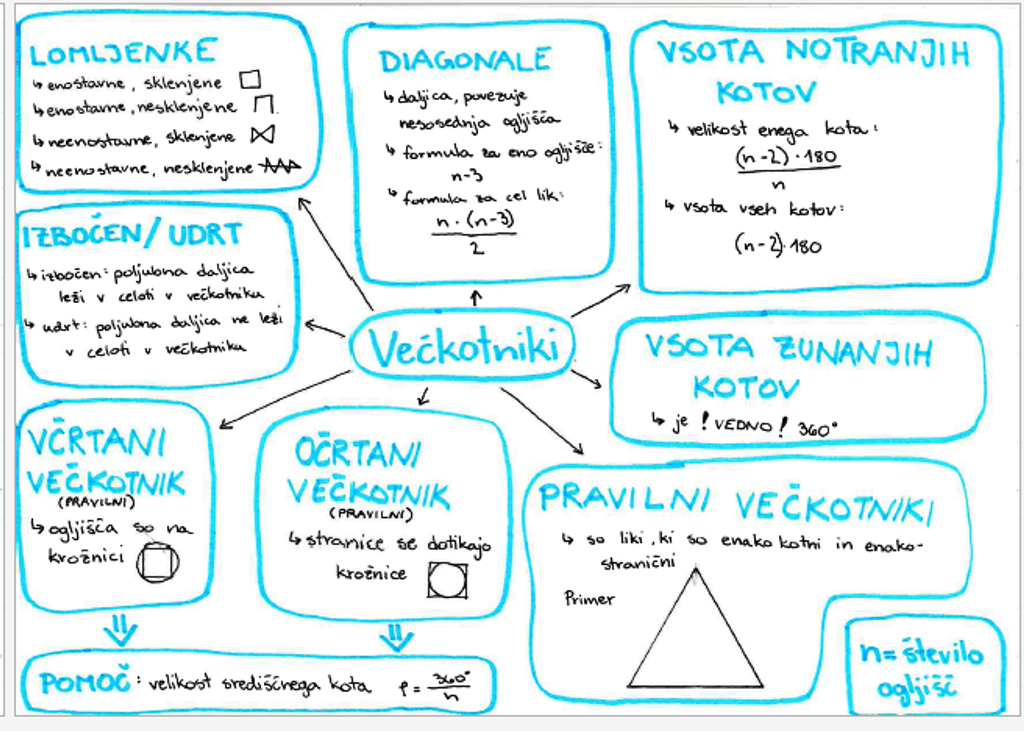 LOMLJENKE
↳ enostavne, sklenjene
↳ enostavne, nesklenjene
↳ neenostavne, sklenjene
↳ neenostavne, nesklenjene
DIAGONALE
↳ daljica, povezuje
nesosednja ogljišča
↳ formula za eno ogljišče:
n-3
↳ formula za cel lik:
n · (n-3)
2
VSOTA NOTRANJIH
KOTOV
↳ velikost enega kota:
(n-2) · 180
n
↳ vsota vseh kotov:
(n-2) · 180
IZBOČEN/UDRT
↳ izbočen: poljubna daljica
leži v celoti v večkotniku
↳ udrt: poljubna daljica ne leži
v celoti v večkotniku
Večkotniki
VSOTA ZUNANJIH
KOTOV
↳ je ! VEDNO ! 360°
VČRTANI
VEČKOTNIK
(PRAVILNI)
↳ ogljišča so na
krožnici
OČRTANI
VEČKOTNIK
(PRAVILNI)
↳ stranice se dotikajo
krožnice
PRAVILNI VEČKOTNIKI
↳ so liki, ki so enako kotni in enako-
stranični
Primer
POMOČ: velikost središčnega kota φ = 360°
n
n = število
ogljišč